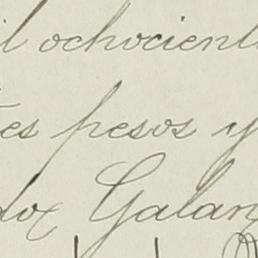 il ochocient
tes pesos y
dox Galan